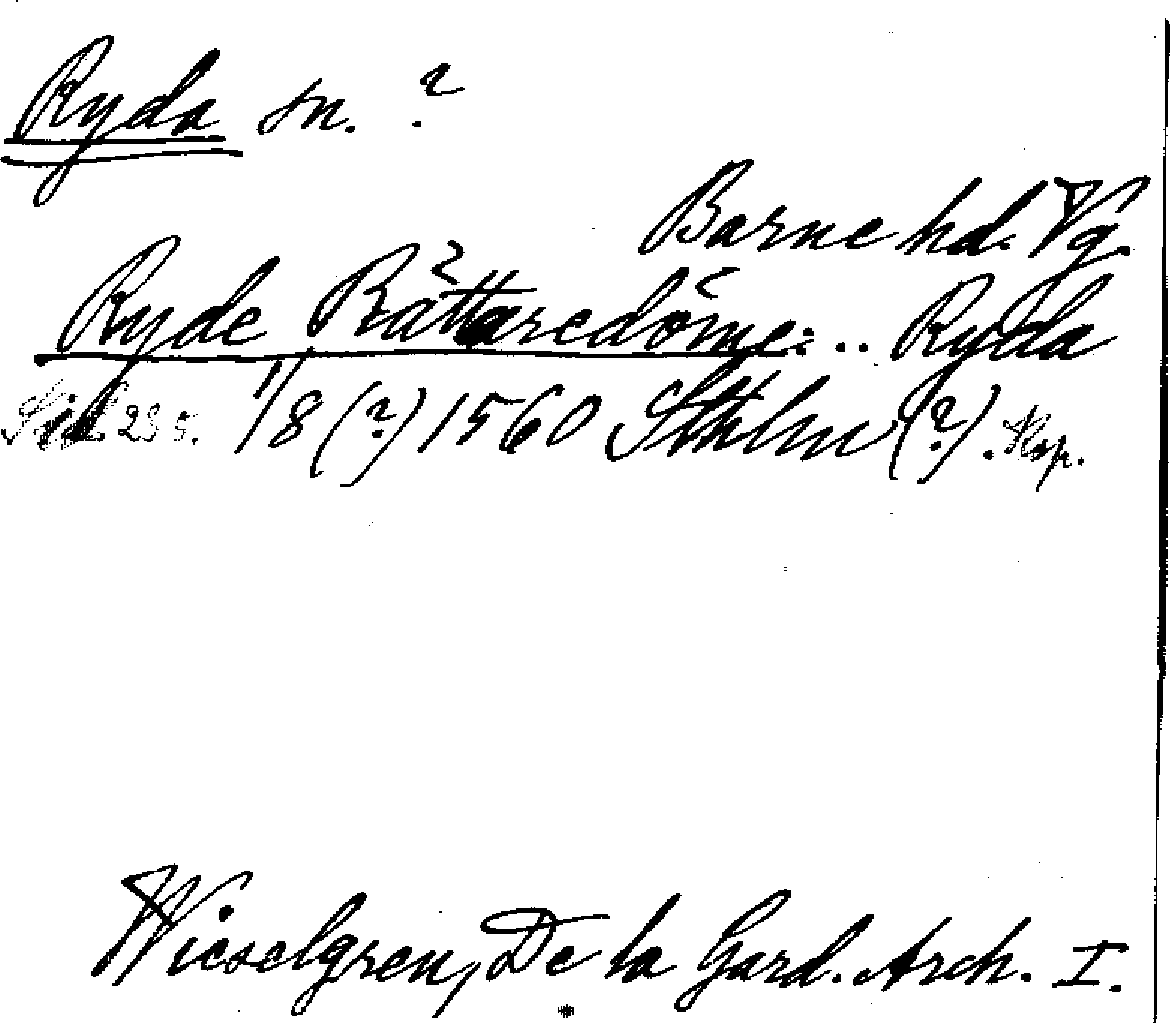 Ryda sn. ?
Barne hd. Vg.
Ryde Rättaredöme: .. Ryda
Sid. 295. 1/8 (?) 1560 Sthlm (?). Kop.
Wieselgren, De la Gard. Arch. I.